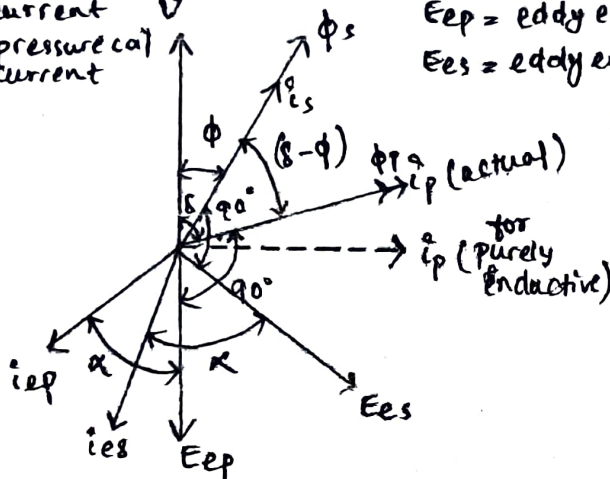 current
pressure cal
current
V
Eep = eddy e
Ees = eddy e
ϕs
is
ϕ
(δ-ϕ)
ϕp ip (actual)
δ
90°
ip (for purely
inductive)
90°
iep
α
α
ies
Eep
Ees